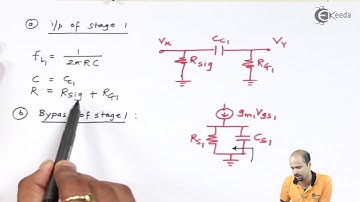 ⓐ i/p of stage 1
f_L1 = 1 / 2πRC
C = C_C1
R = R_sig + R_G1
ⓑ Bypass of stage 1 :
V_x C_C1 V_Y
R_sig R_G1
g_m1 V_gs1
R_S1 C_S1
Ekeeda